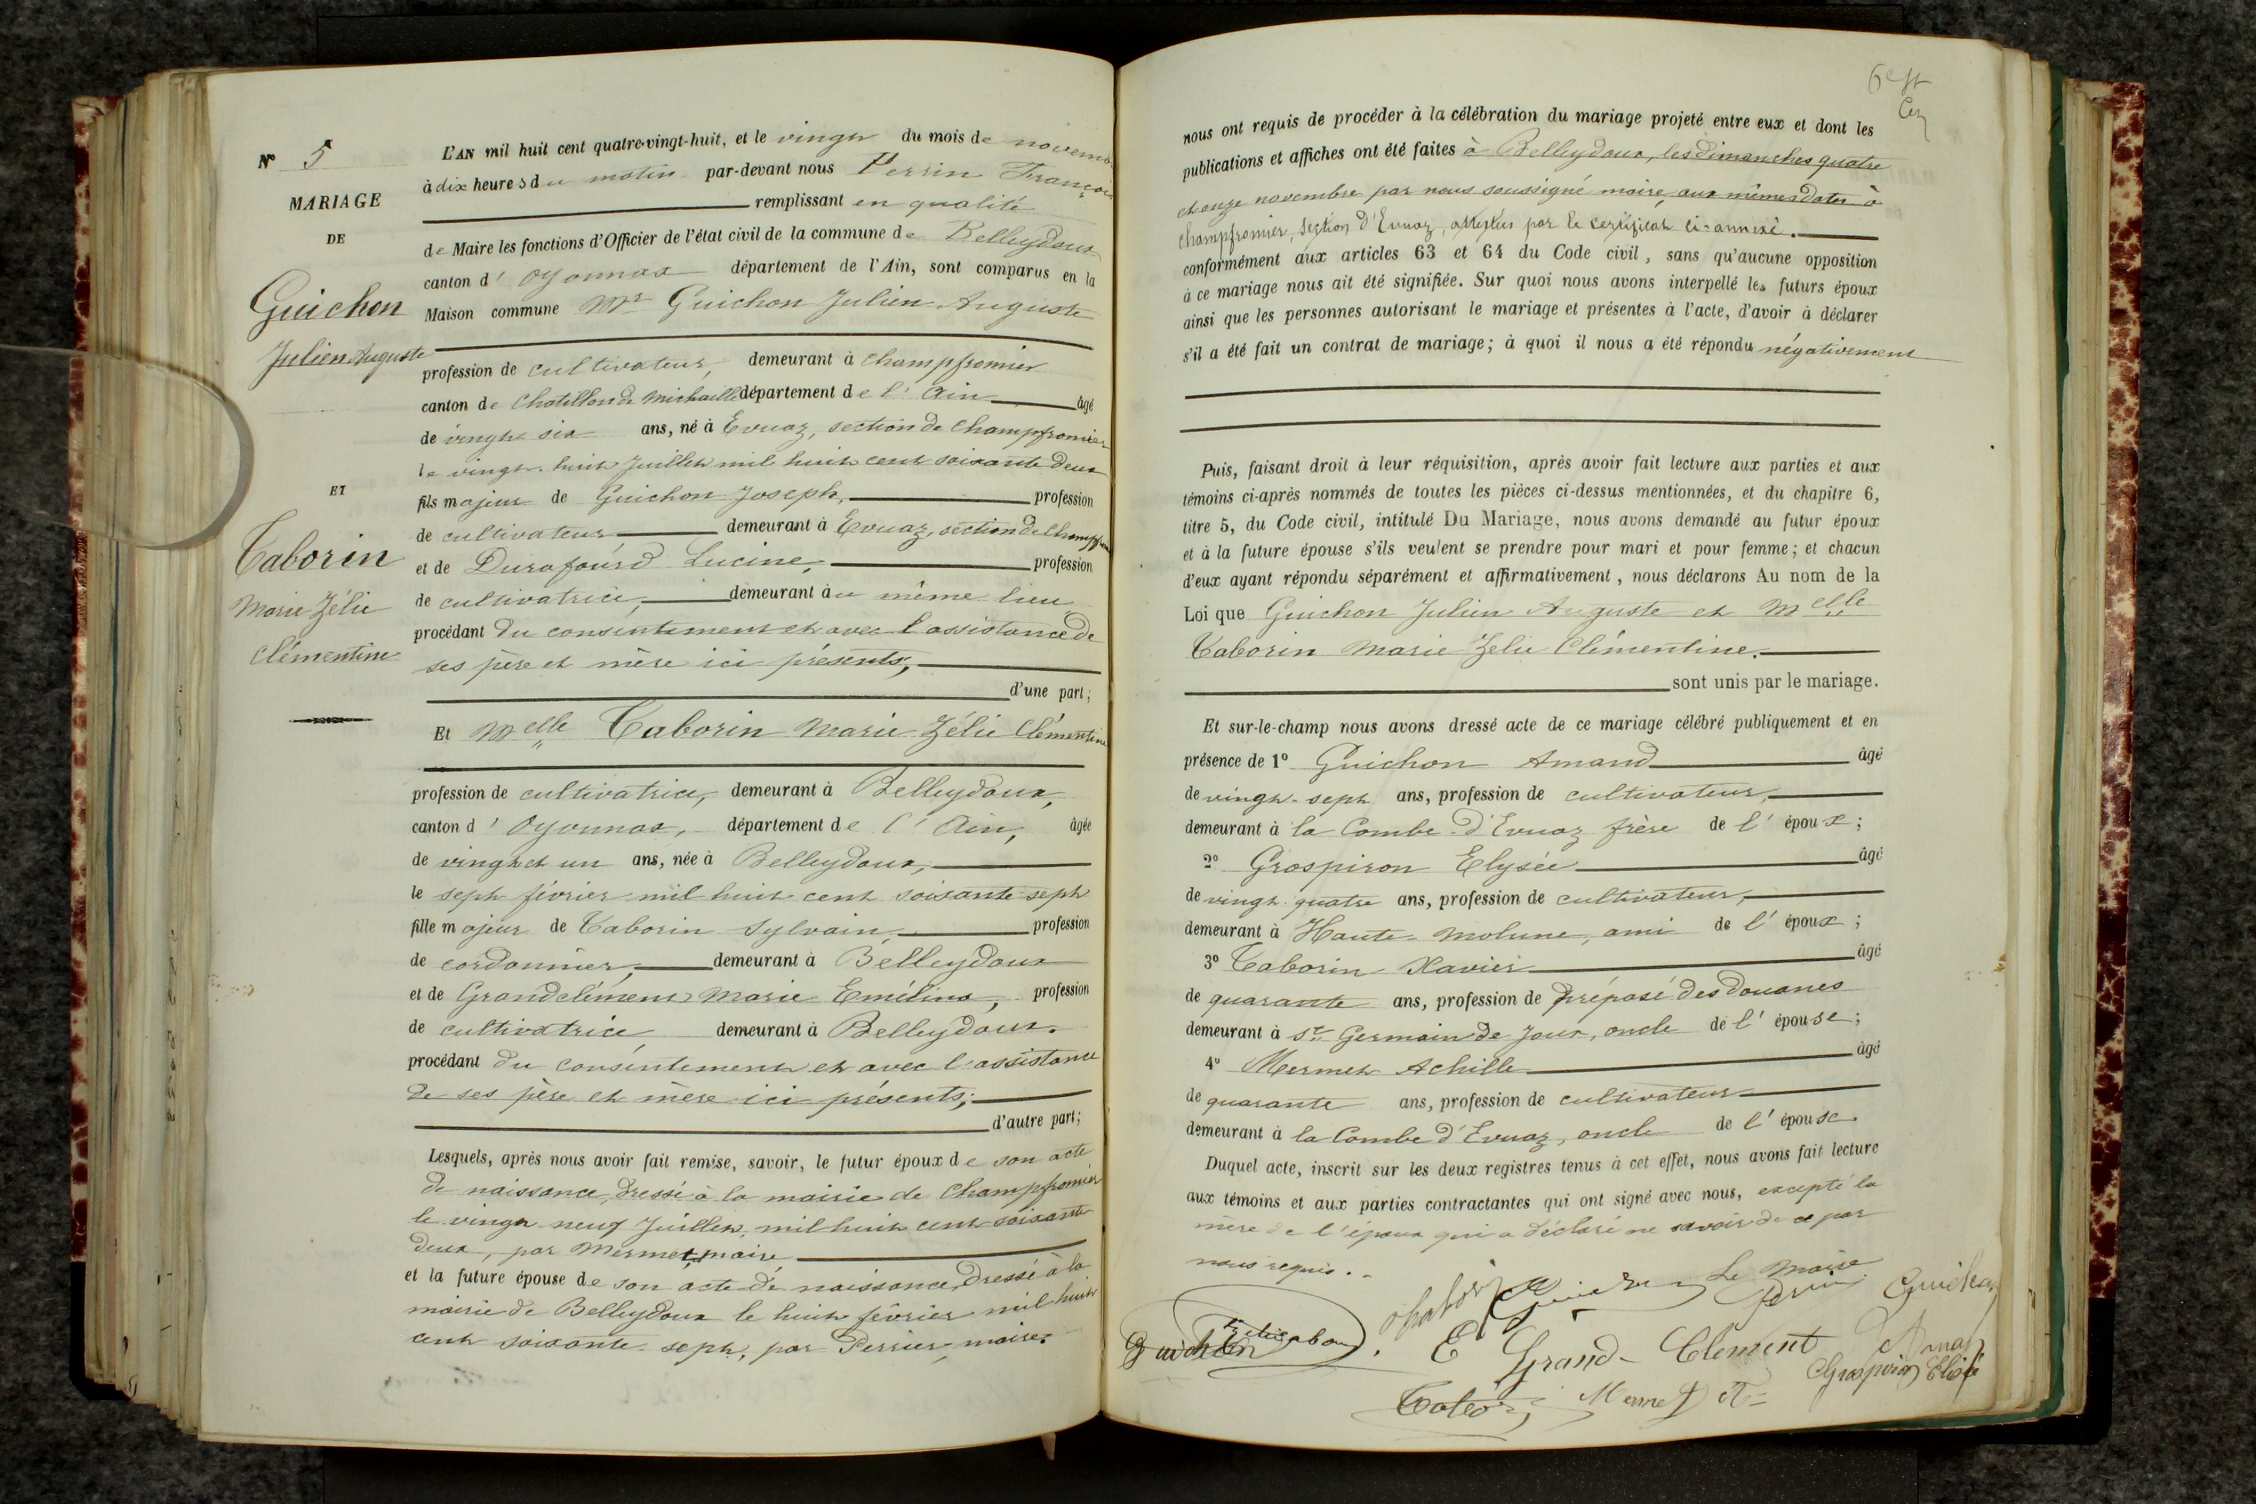 Nº 5
MARIAGE
DE
Guichon
Julien Auguste
ET
Taborin
Marie Zélie
Clémentine
L'AN mil huit cent quatre-vingt-huit, et le vingt du mois de novemb
à dix heures du matin par-devant nous Perrin François
remplissant en qualité
de Maire les fonctions d'Officier de l'état civil de la commune de Belleydoux
canton d' Oyonnax département de l'Ain, sont comparus en la
Maison commune Mr Guichon Julien Auguste
profession de cultivateur, demeurant à Champfromier
canton de Chatillon de Michaille département de l' Ain âgé
de vingt six ans, né à Evuaz, section de Champfromier
le vingt-huit Juillet mil huit cent soixante deux
fils majeur de Guichon Joseph, profession
de cultivateur demeurant à Evuaz, section de Champfrom
et de Durafourd Lucine, profession
de cultivatrice, demeurant au même lieu
procédant du consentement et avec l'assistance de
ses père et mère ici présents,
d'une part;
Et Melle Taborin Marie Zélie Clémentine
profession de cultivatrice, demeurant à Belleydoux,
canton d' Oyonnax, département de l' Ain, âgée
de vingt et un ans, née à Belleydoux,
le sept février mil huit cent soixante-sept
fille majeur de Taborin Sylvain, profession
de cordonnier, demeurant à Belleydoux
et de Grandclément Marie Emélina, profession
de cultivatrice, demeurant à Belleydoux.
procédant du consentement et avec l'assistance
de ses père et mère ici présents;
d'autre part;
Lesquels, après nous avoir fait remise, savoir, le futur époux de son acte
de naissance, dressé à la mairie de Champfromier
le vingt neuf Juillet, mil huit cent soixante
deux, par Mermet, maire
et la future épouse de son acte de naissance, dressé à la
mairie de Belleydoux le huit février mil huit
cent soixante sept, par Perrier, maire.
nous ont requis de procéder à la célébration du mariage projeté entre eux et dont les
publications et affiches ont été faites à Belleydoux, les dimanches quatre
et onze novembre par nous soussigné maire, aux mêmes dates à
Champfromier, section d'Evuaz, attestées par le certificat ci-annexé.
conformément aux articles 63 et 64 du Code civil, sans qu'aucune opposition
à ce mariage nous ait été signifiée. Sur quoi nous avons interpellé les futurs époux
ainsi que les personnes autorisant le mariage et présentes à l'acte, d'avoir à déclarer
s'il a été fait un contrat de mariage; à quoi il nous a été répondu négativement
Puis, faisant droit à leur réquisition, après avoir fait lecture aux parties et aux
témoins ci-après nommés de toutes les pièces ci-dessus mentionnées, et du chapitre 6,
titre 5, du Code civil, intitulé Du Mariage, nous avons demandé au futur époux
et à la future épouse s'ils veulent se prendre pour mari et pour femme; et chacun
d'eux ayant répondu séparément et affirmativement, nous déclarons Au nom de la
Loi que Guichon Julien Auguste et Melle
Taborin Marie Zélie Clémentine.
sont unis par le mariage.
Et sur-le-champ nous avons dressé acte de ce mariage célébré publiquement et en
présence de 1º Guichon Amand âgé
de vingt-sept ans, profession de cultivateur,
demeurant à la Combe d'Evuaz frère de l' époux;
2º Grospiron Elysée âgé
de vingt quatre ans, profession de cultivateur,
demeurant à Haute-Molune, ami de l' époux;
3º Taborin Xavier âgé
de quarante ans, profession de préposé des Douanes
demeurant à St Germain de Joux, oncle de l' épouse;
4º Mermet Achille âgé
de quarante ans, profession de cultivateur
demeurant à la Combe d'Evuaz, oncle de l' épouse
Duquel acte, inscrit sur les deux registres tenus à cet effet, nous avons fait lecture
aux témoins et aux parties contractantes qui ont signé avec nous, excepté la
mère de l'époux qui a déclaré ne savoir de ce par
nous requis.
Le Maire
Perrin
Guichon
Guichon
E Grand-Clement
Grospiron Elisé
Mermet A